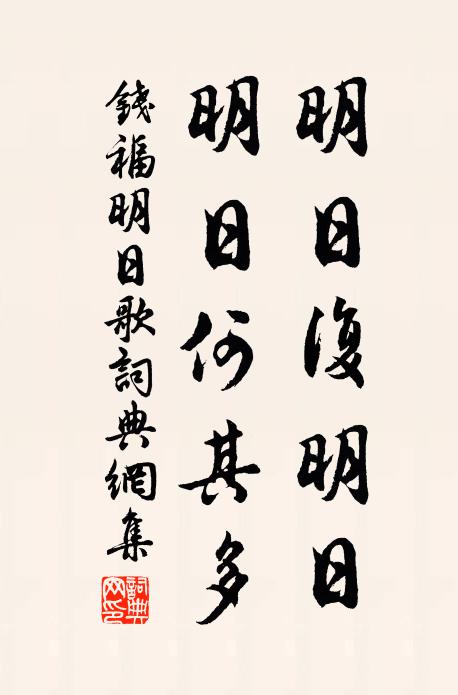 明日復明日
明日何其多
錢福明日歌詞典網集
詞典網印